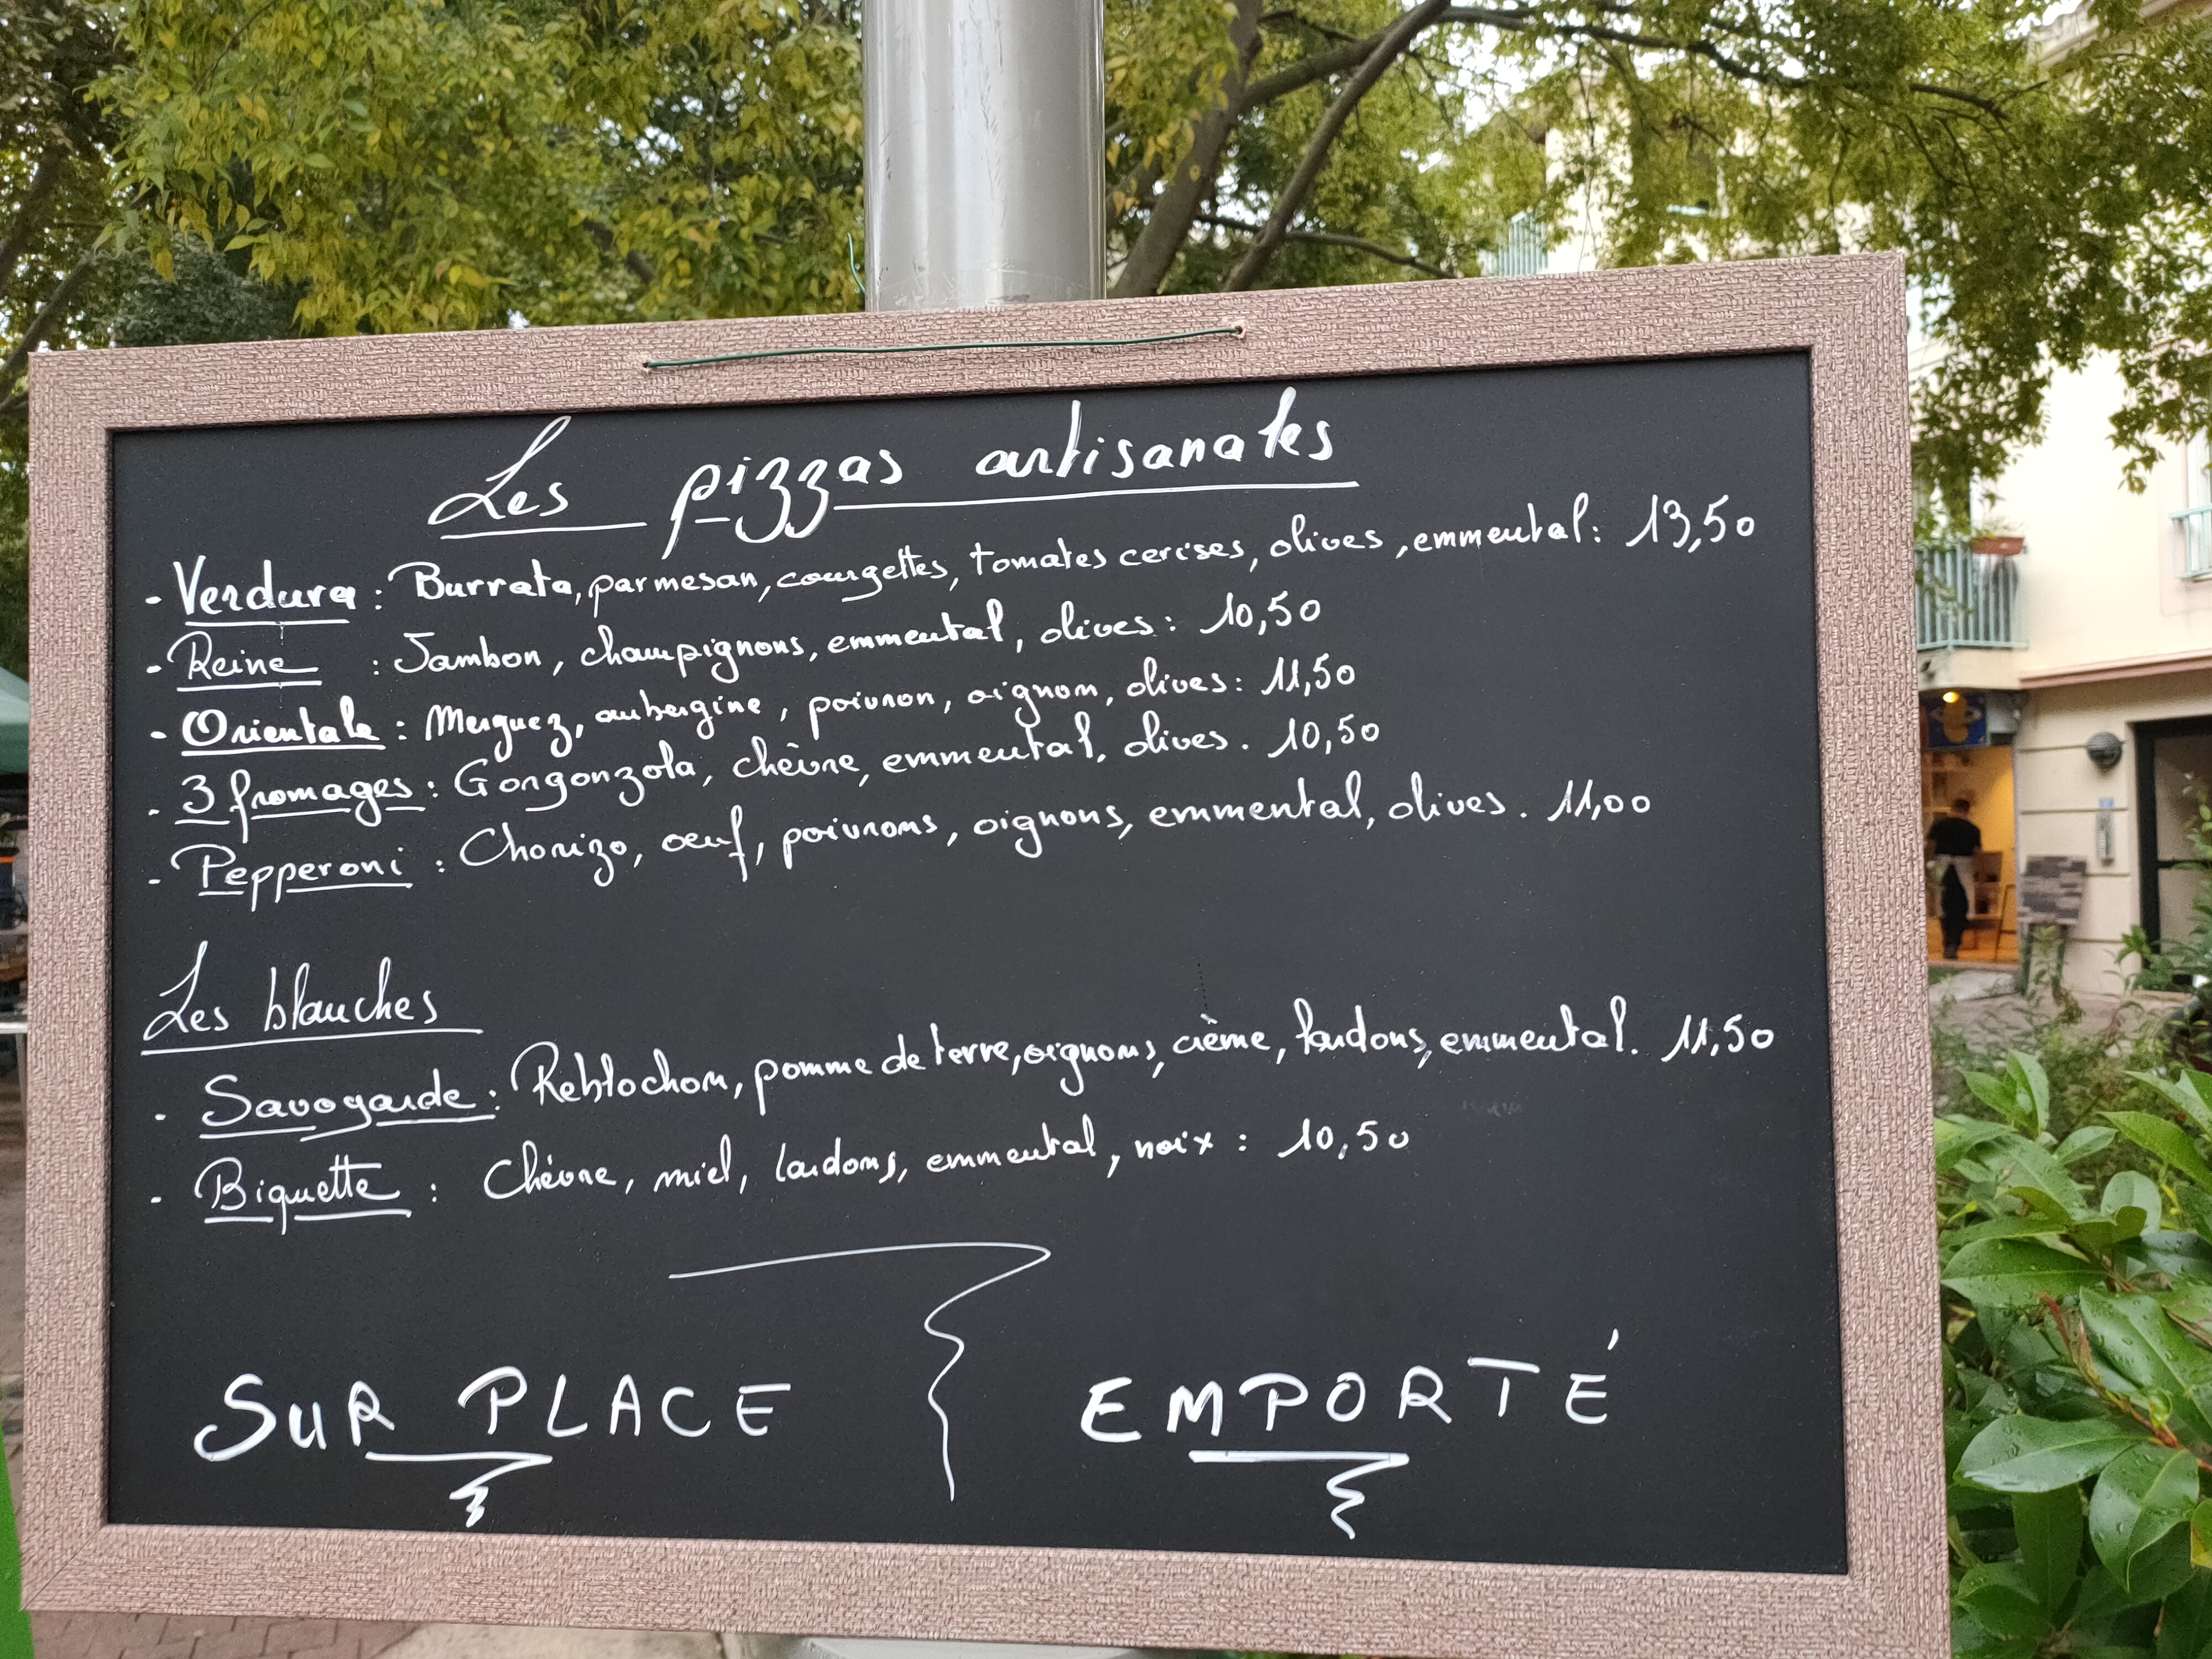 Les pizzas artisanales
- Verdura : Burrata, parmesan, courgettes, tomates cerises, olives, emmental : 13,50
- Reine : Jambon, champignons, emmental, olives : 10,50
- Orientale : Merguez, aubergine, poivron, oignon, olives : 11,50
- 3 fromages : Gorgonzola, chèvre, emmental, olives. 10,50
- Pepperoni : Chorizo, oeuf, poivrons, oignons, emmental, olives. 11,00
Les blanches
- Savoyarde : Reblochon, pomme de terre, oignons, crème, lardons, emmental. 11,50
- Biquette : Chèvre, miel, lardons, emmental, noix : 10,50
SUR PLACE EMPORTÉ